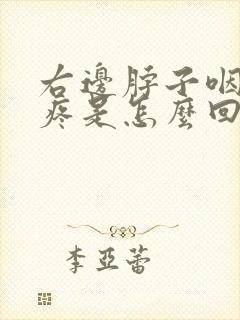 右邊脖子咽
疼是怎麼回
李亞蕾